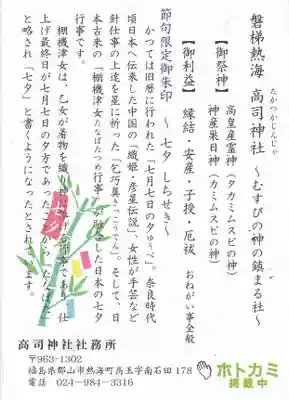 磐梯熱海 高司神社 ～むすびの神の鎮まる社～
たかつかじんじゃ
【御祭神】 高皇産霊神(タカミムスビの神)
神産巣日神(カミムスビの神)
【御利益】 縁結・安産・子授・厄祓 おねがい事全般
節句限定御朱印 ～七夕 しちせき～
かつては旧暦に行われた「七月七日の夕ゆうべ」。奈良時代
頃日本へ伝来した中国の「織姫・彦星伝説」、女性が手芸など
針仕事の上達を星に祈った「乞巧奠きっこうでん」。そして、日
本古来の「棚機津女たなばたつめ行事」が融合した日本の七夕
行事です。
棚機津女は、乙女が着物を織り
上げ最終日が七月七日の夕方であった
と略され「七夕」と書くようになったとされています。
高司神社社務所
〒963-1302
福島県郡山市熱海町高玉字南石田178
電話 024-984-3316
ホトカミ
掲載中